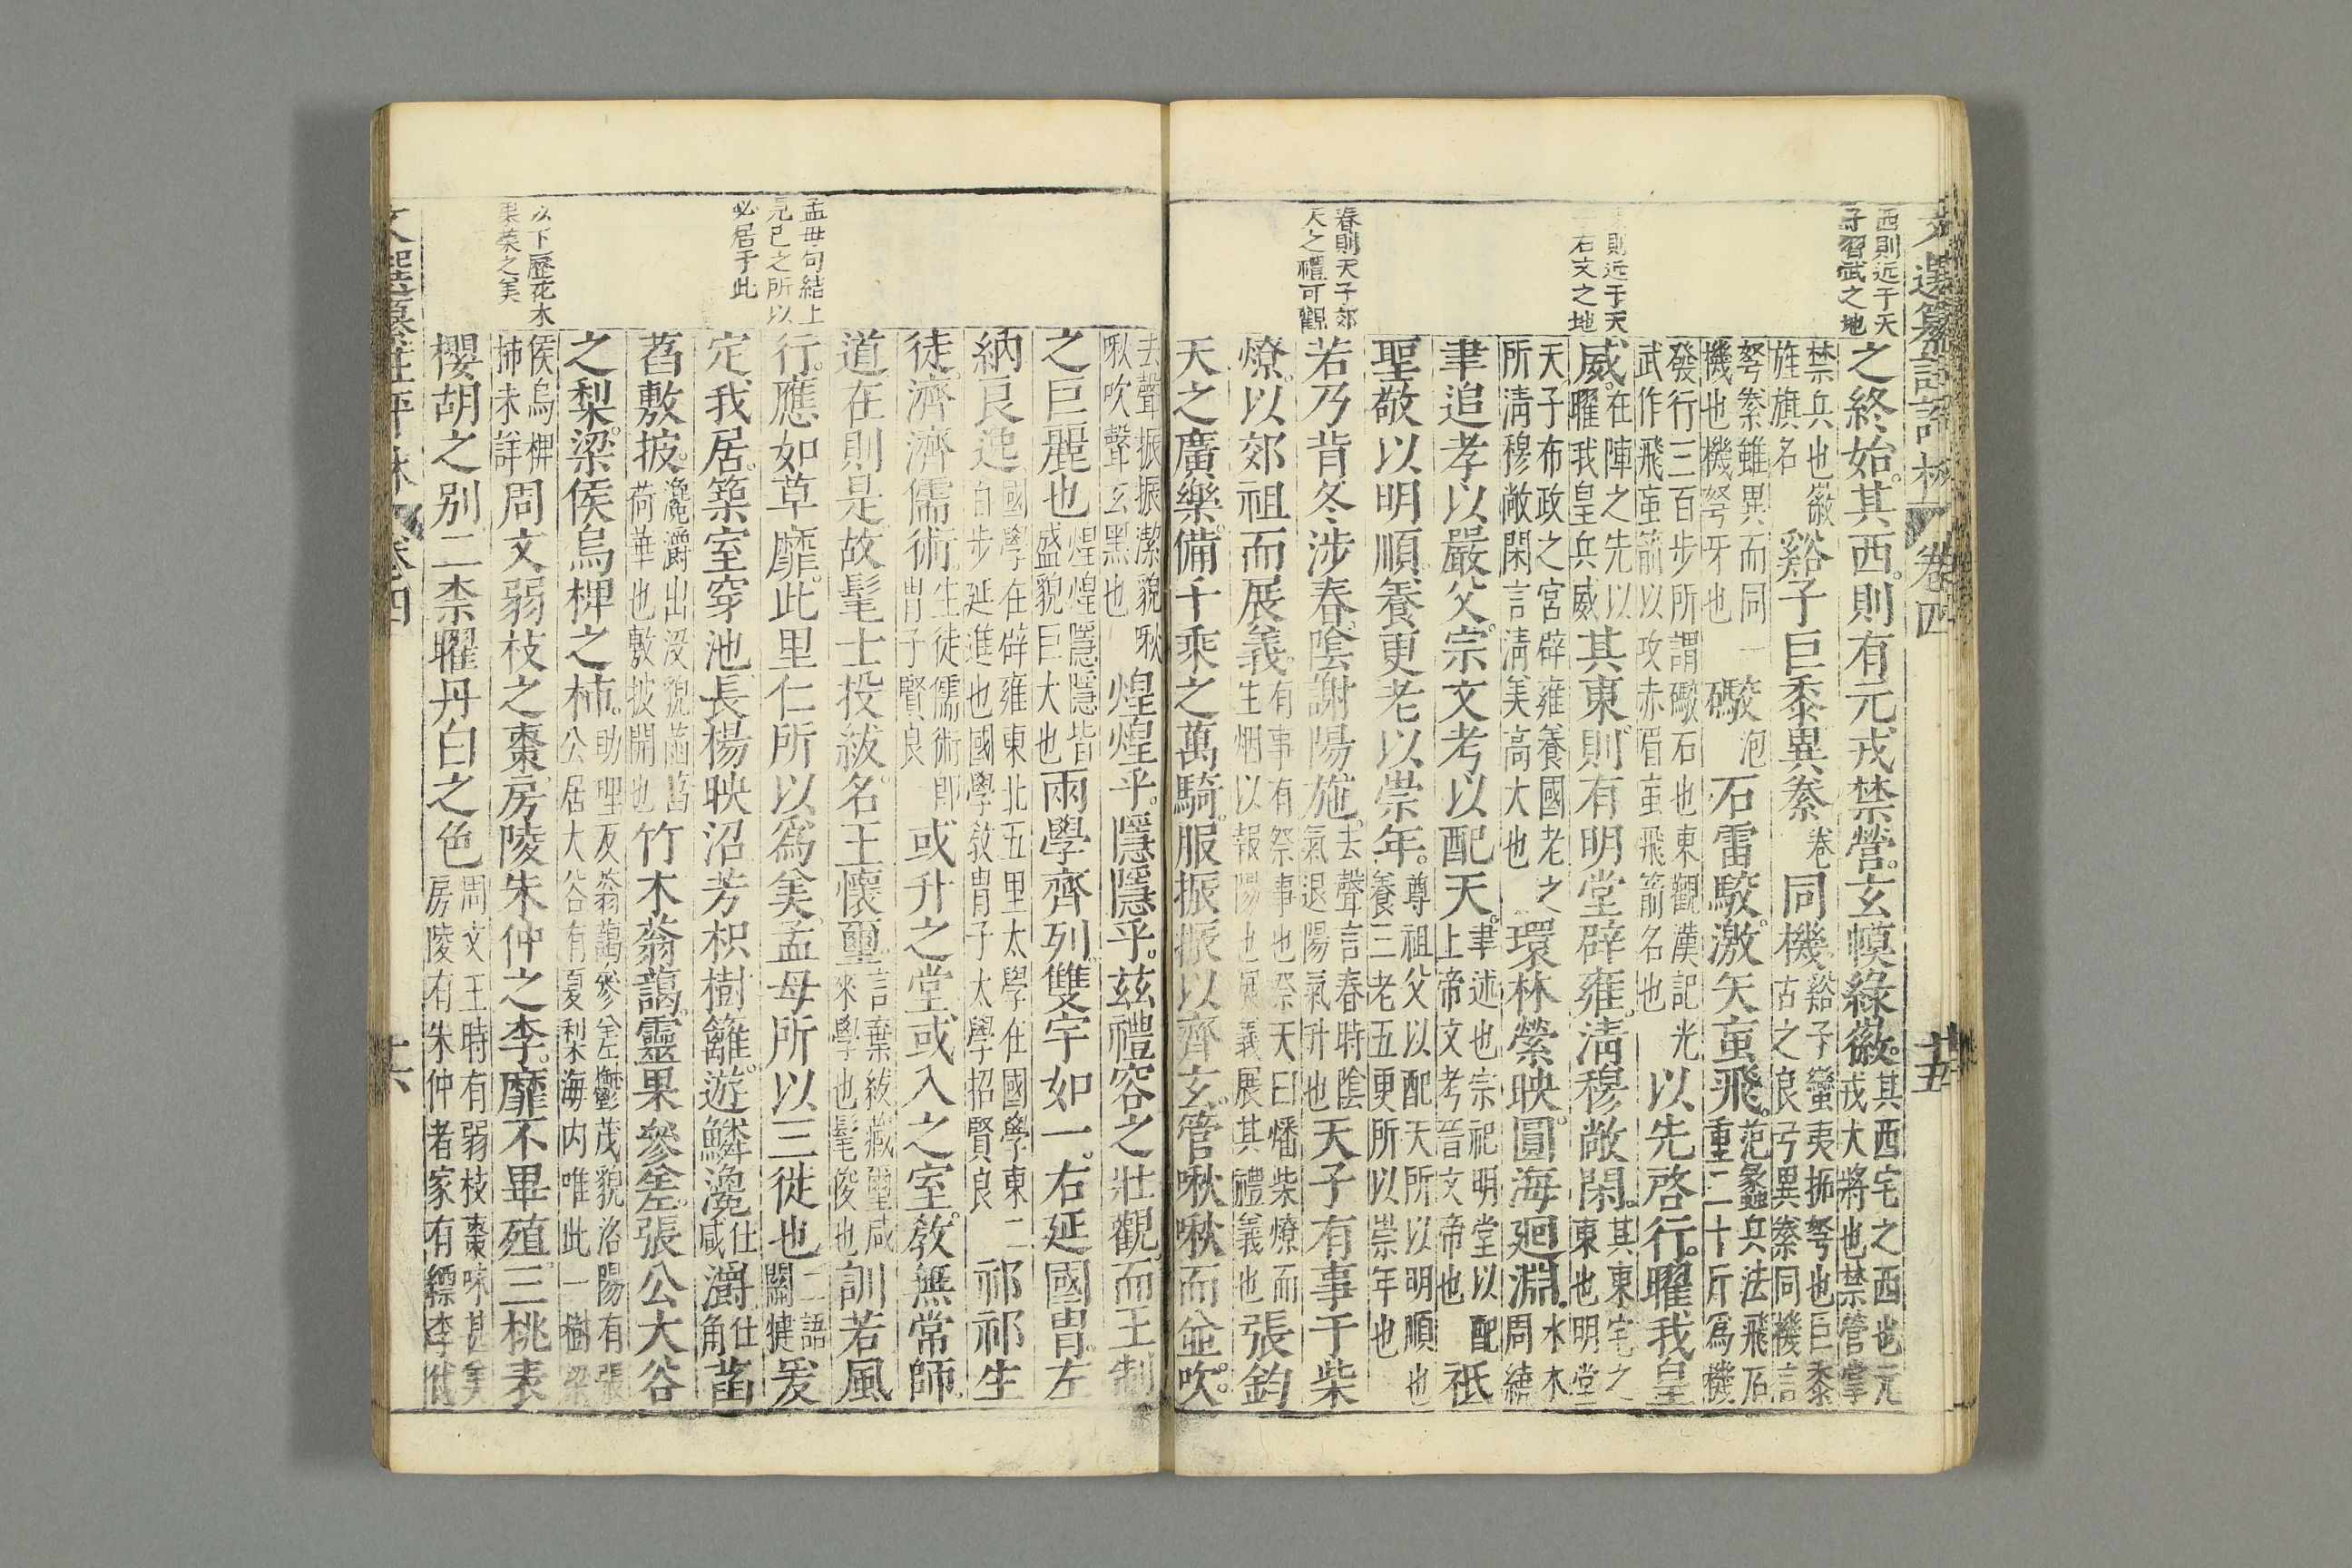 文選纂註評林 卷四 十五
西則近于天
子習武之地
則近于天
右文之地
春則天子郊
天之禮可觀
之終始其西則有元戎禁營玄幙綠徽其西宅之西也元戎大將也禁管掌
禁兵也徽旌旗名谿子巨黍異絭卷同機谿子蠻夷㧓弩也巨黍古之良弓異絭同機言
弩絭雖異而同一機也機弩牙也礮泡石雷駭激矢䖟飛范蠡兵法飛石重二十斤爲機
發行三百步所謂礮石也東觀漢記光武作飛䖟箭以攻赤眉䖟飛箭名也以先啓行曜我皇
威在陣之先以曜我皇兵威其東則有明堂辟雍清穆敞閑其東宅之東也明堂
天子布政之宮辟雍養國老之所清穆敞閑言清美高大也環林縈映圓海廻淵水木周繞
聿追孝以嚴父宗文考以配天聿述也宗祀明堂以配上帝文考晉文帝也祗
聖敬以明順養更老以崇年尊祖父以配天所以明順也養三老五更所以崇年也
若乃背冬涉春陰謝陽施去聲言春時陰氣退陽氣升也天子有事于柴
燎以郊祖而展義有事有祭事也祭天曰燔柴燎而生烟以報陽也展義展其禮義也張鈞
天之廣樂備千乘之萬騎服振振以齊玄管啾啾而竝吹
去聲振振潔貌啾啾吹聲玄黑也煌煌乎隱隱乎茲禮容之壯觀而王制
之巨麗也煌煌隱隱皆盛貌巨大也兩學齊列雙宇如一右延國胄左
納良逸國學在辟雍東北五里太學在國學東二百步延進也國學敎胄子太學招賢良祁祁生
徒濟濟儒術生徒儒術卽胄子賢良或升之堂或入之室敎無常師
道在則是故髦士投紱名王懷璽言棄紱藏璽咸來學也髦俊也訓若風
行應如草靡此里仁所以爲美孟母所以三徙也二語關揵爰
定我居築室穿池長楊映沼芳枳樹籬遊鱗瀺仕咸灂仕角菡
萏敷披瀺灂出沒貌菡萏荷華也敷披開也竹木蓊藹靈果參差張公大谷
之梨梁侯烏椑之柿助理反蓊藹參差欝茂貌洛陽有張公居大谷有夏梨海内唯此一樹梁
侯烏椑柿未詳周文弱枝之棗房陵朱仲之李靡不畢殖三桃表
櫻胡之別二柰曜丹白之色周文王時有弱枝棗味甚美房陵有朱仲者家有縹李代
孟母句結上
見已之所以
必居于此
以下歷花木
果菜之美
文選纂註評林 卷四 十六